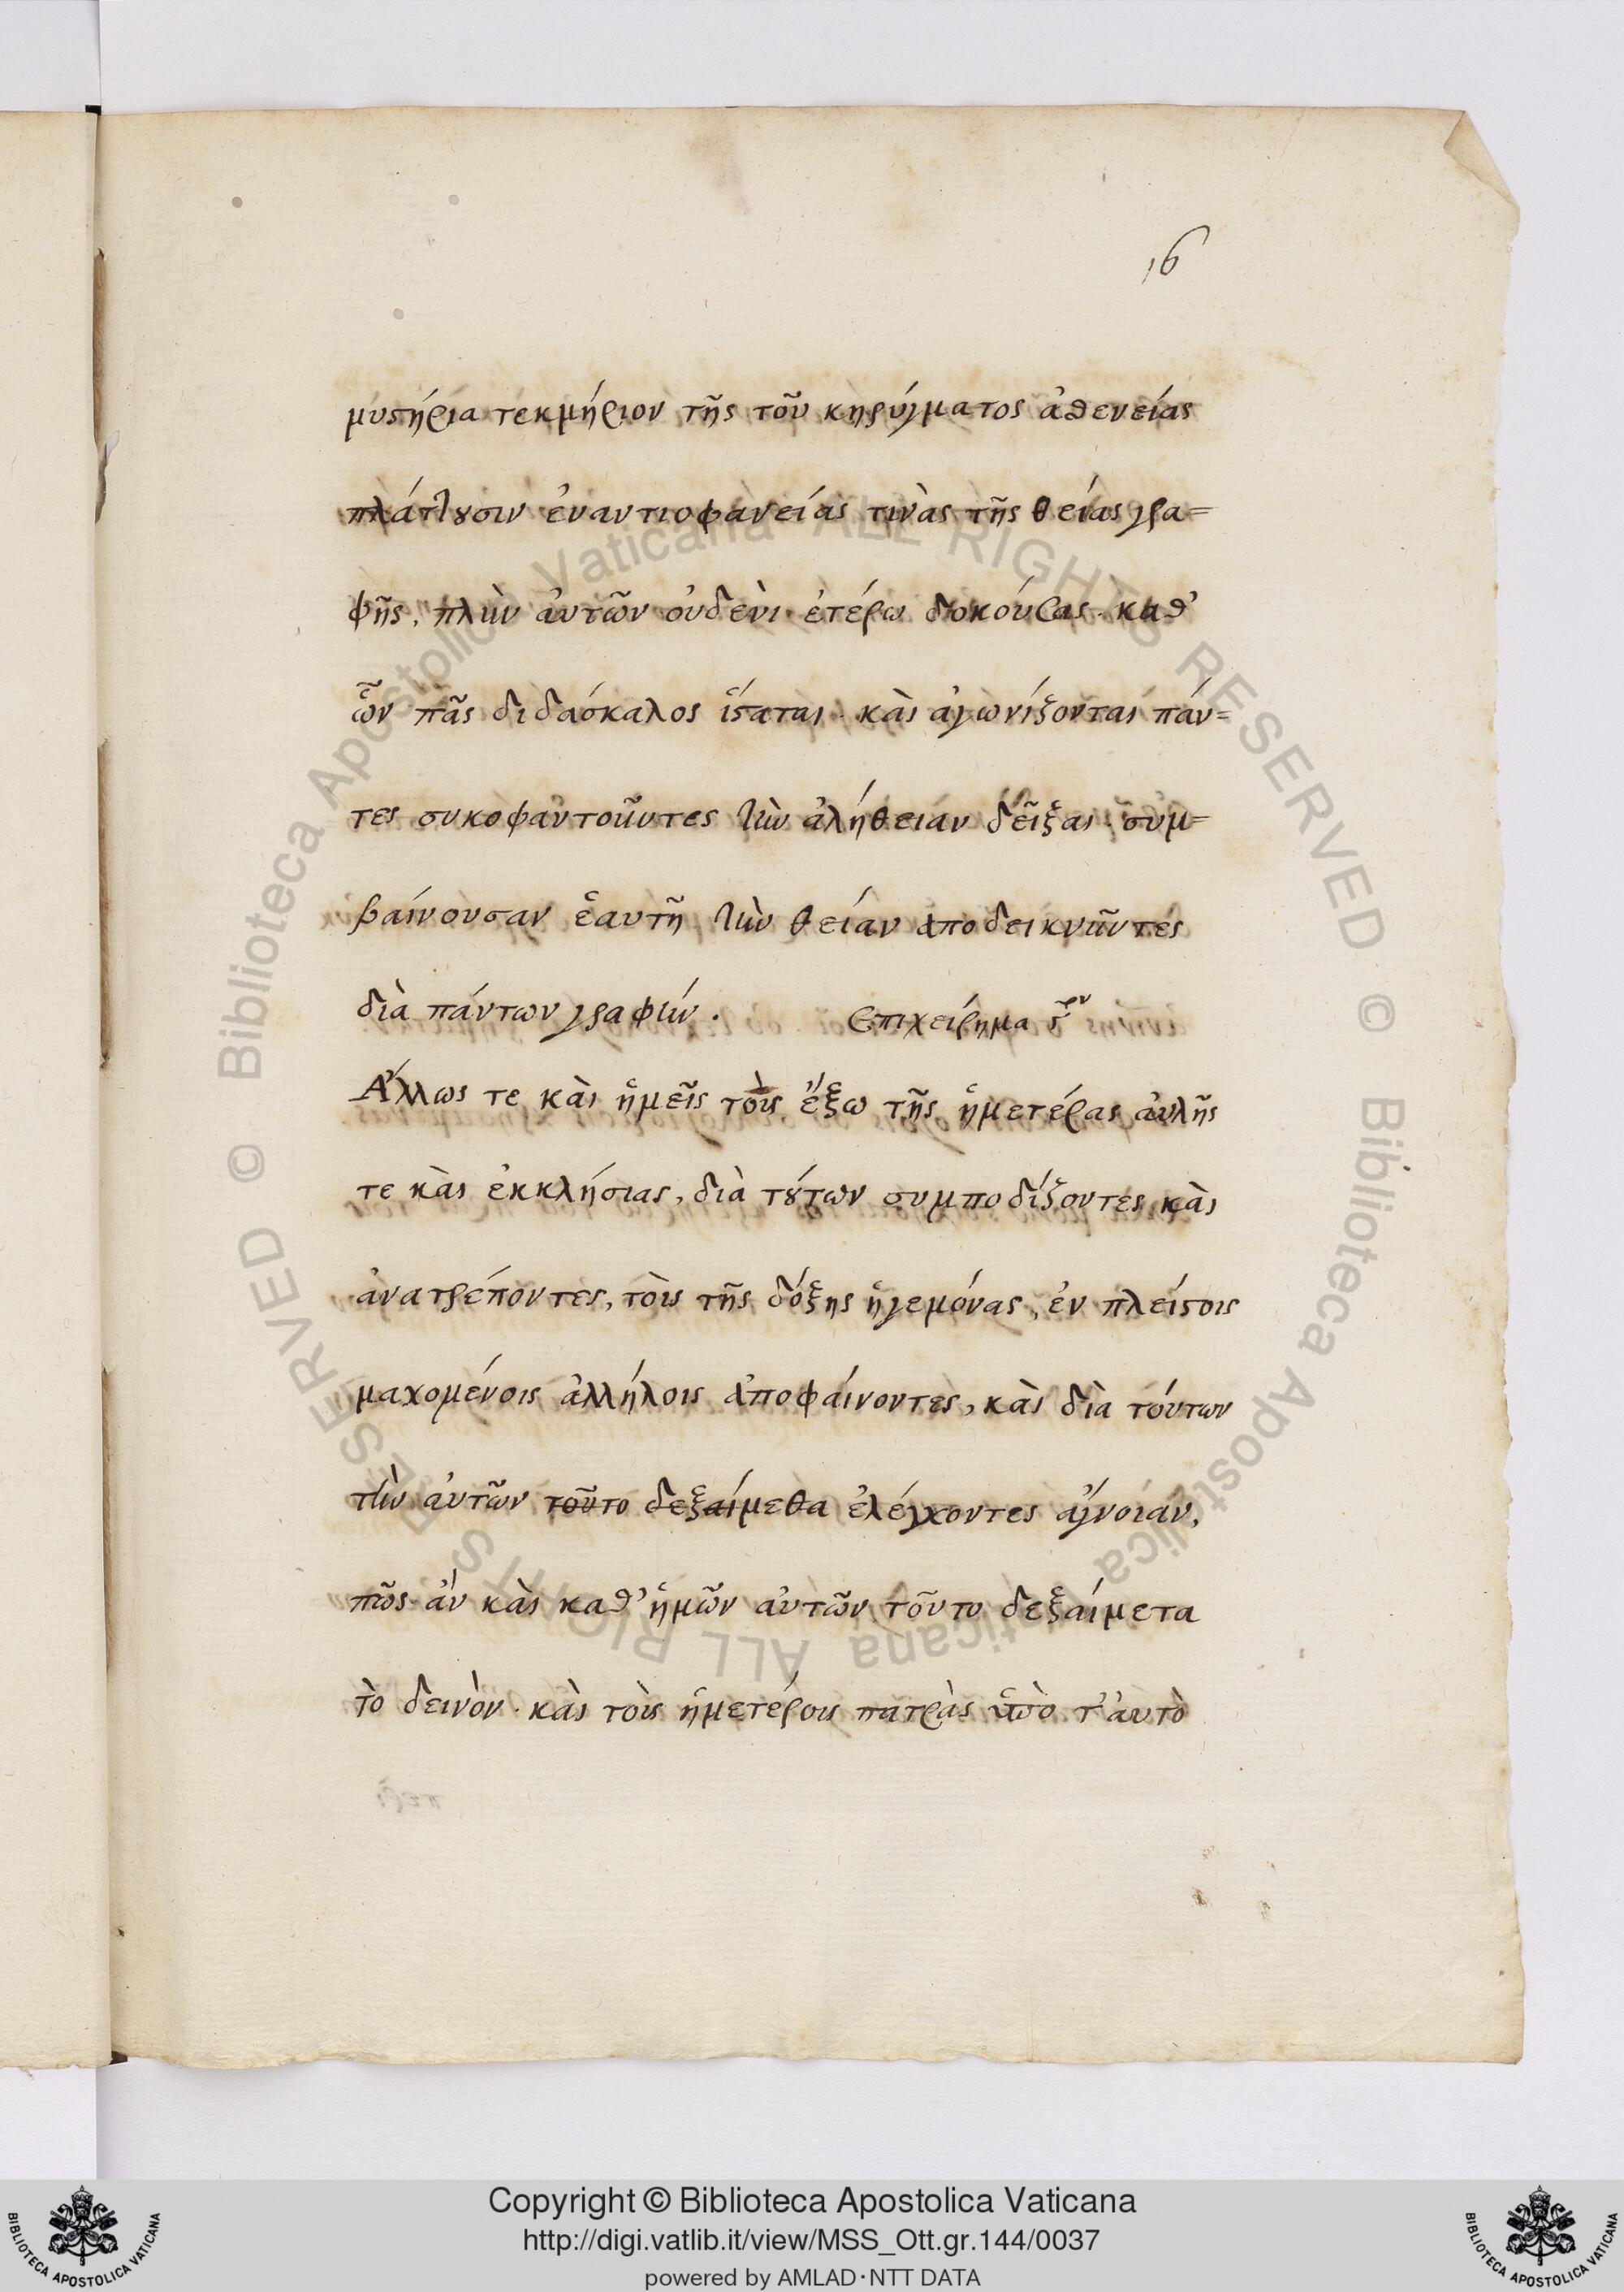 16
μυστήρια τεκμήριον τῆς τοῦ κηρύγματος ἀσθενείας
πλάττουσιν ἐναντιοφανείας τινὰς τῆς θείας γρα=
φῆς, πλὴν ἀυτῶν οὐδενὶ ἑτέρω δοκούσας. καθ'
ὧν πᾶς διδάσκαλος ἵσταται. κὰι ἀγωνίζονται πάν=
τες συκοφαντοῦντες τὴν ἀλήθειαν δεῖξαι. συμ=
βαίνουσαν ἑαυτῆ τὴν θείαν ἀποδεικνῦντες
διὰ πάντων γραφήν. Επιχείρημα ς^ον
Ἄλλως τε κὰι ἡμεῖς τοὺς ἔξω τῆς ἡμετέρας ἀυλῆς
τε κὰι ἐκκλήσιας, διὰ τούτων συμποδίζοντες κὰι
ἀνατρέποντες, τοὺς τῆς δόξης ἡγεμόνας, ἐν πλείστοις
μαχομένοις ἀλλήλοις ἀποφαίνοντες, κὰι διὰ τούτων
τὴν ἀυτῶν τοῦτο δεξαίμεθα ἐλέγχοντες ἄγνοιαν,
πῶς ἂν κὰι καθ' ἡμῶν αὐτῶν τοῦτο δεξαίμετα
τὸ δεινὸν. κὰι τοὺς ἡμετέρους πατρὰς ὑπὸ τ' ἀυτὸ
Copyright © Biblioteca Apostolica Vaticana
http://digi.vatlib.it/view/MSS_Ott.gr.144/0037
powered by AMLAD·NTT DATA